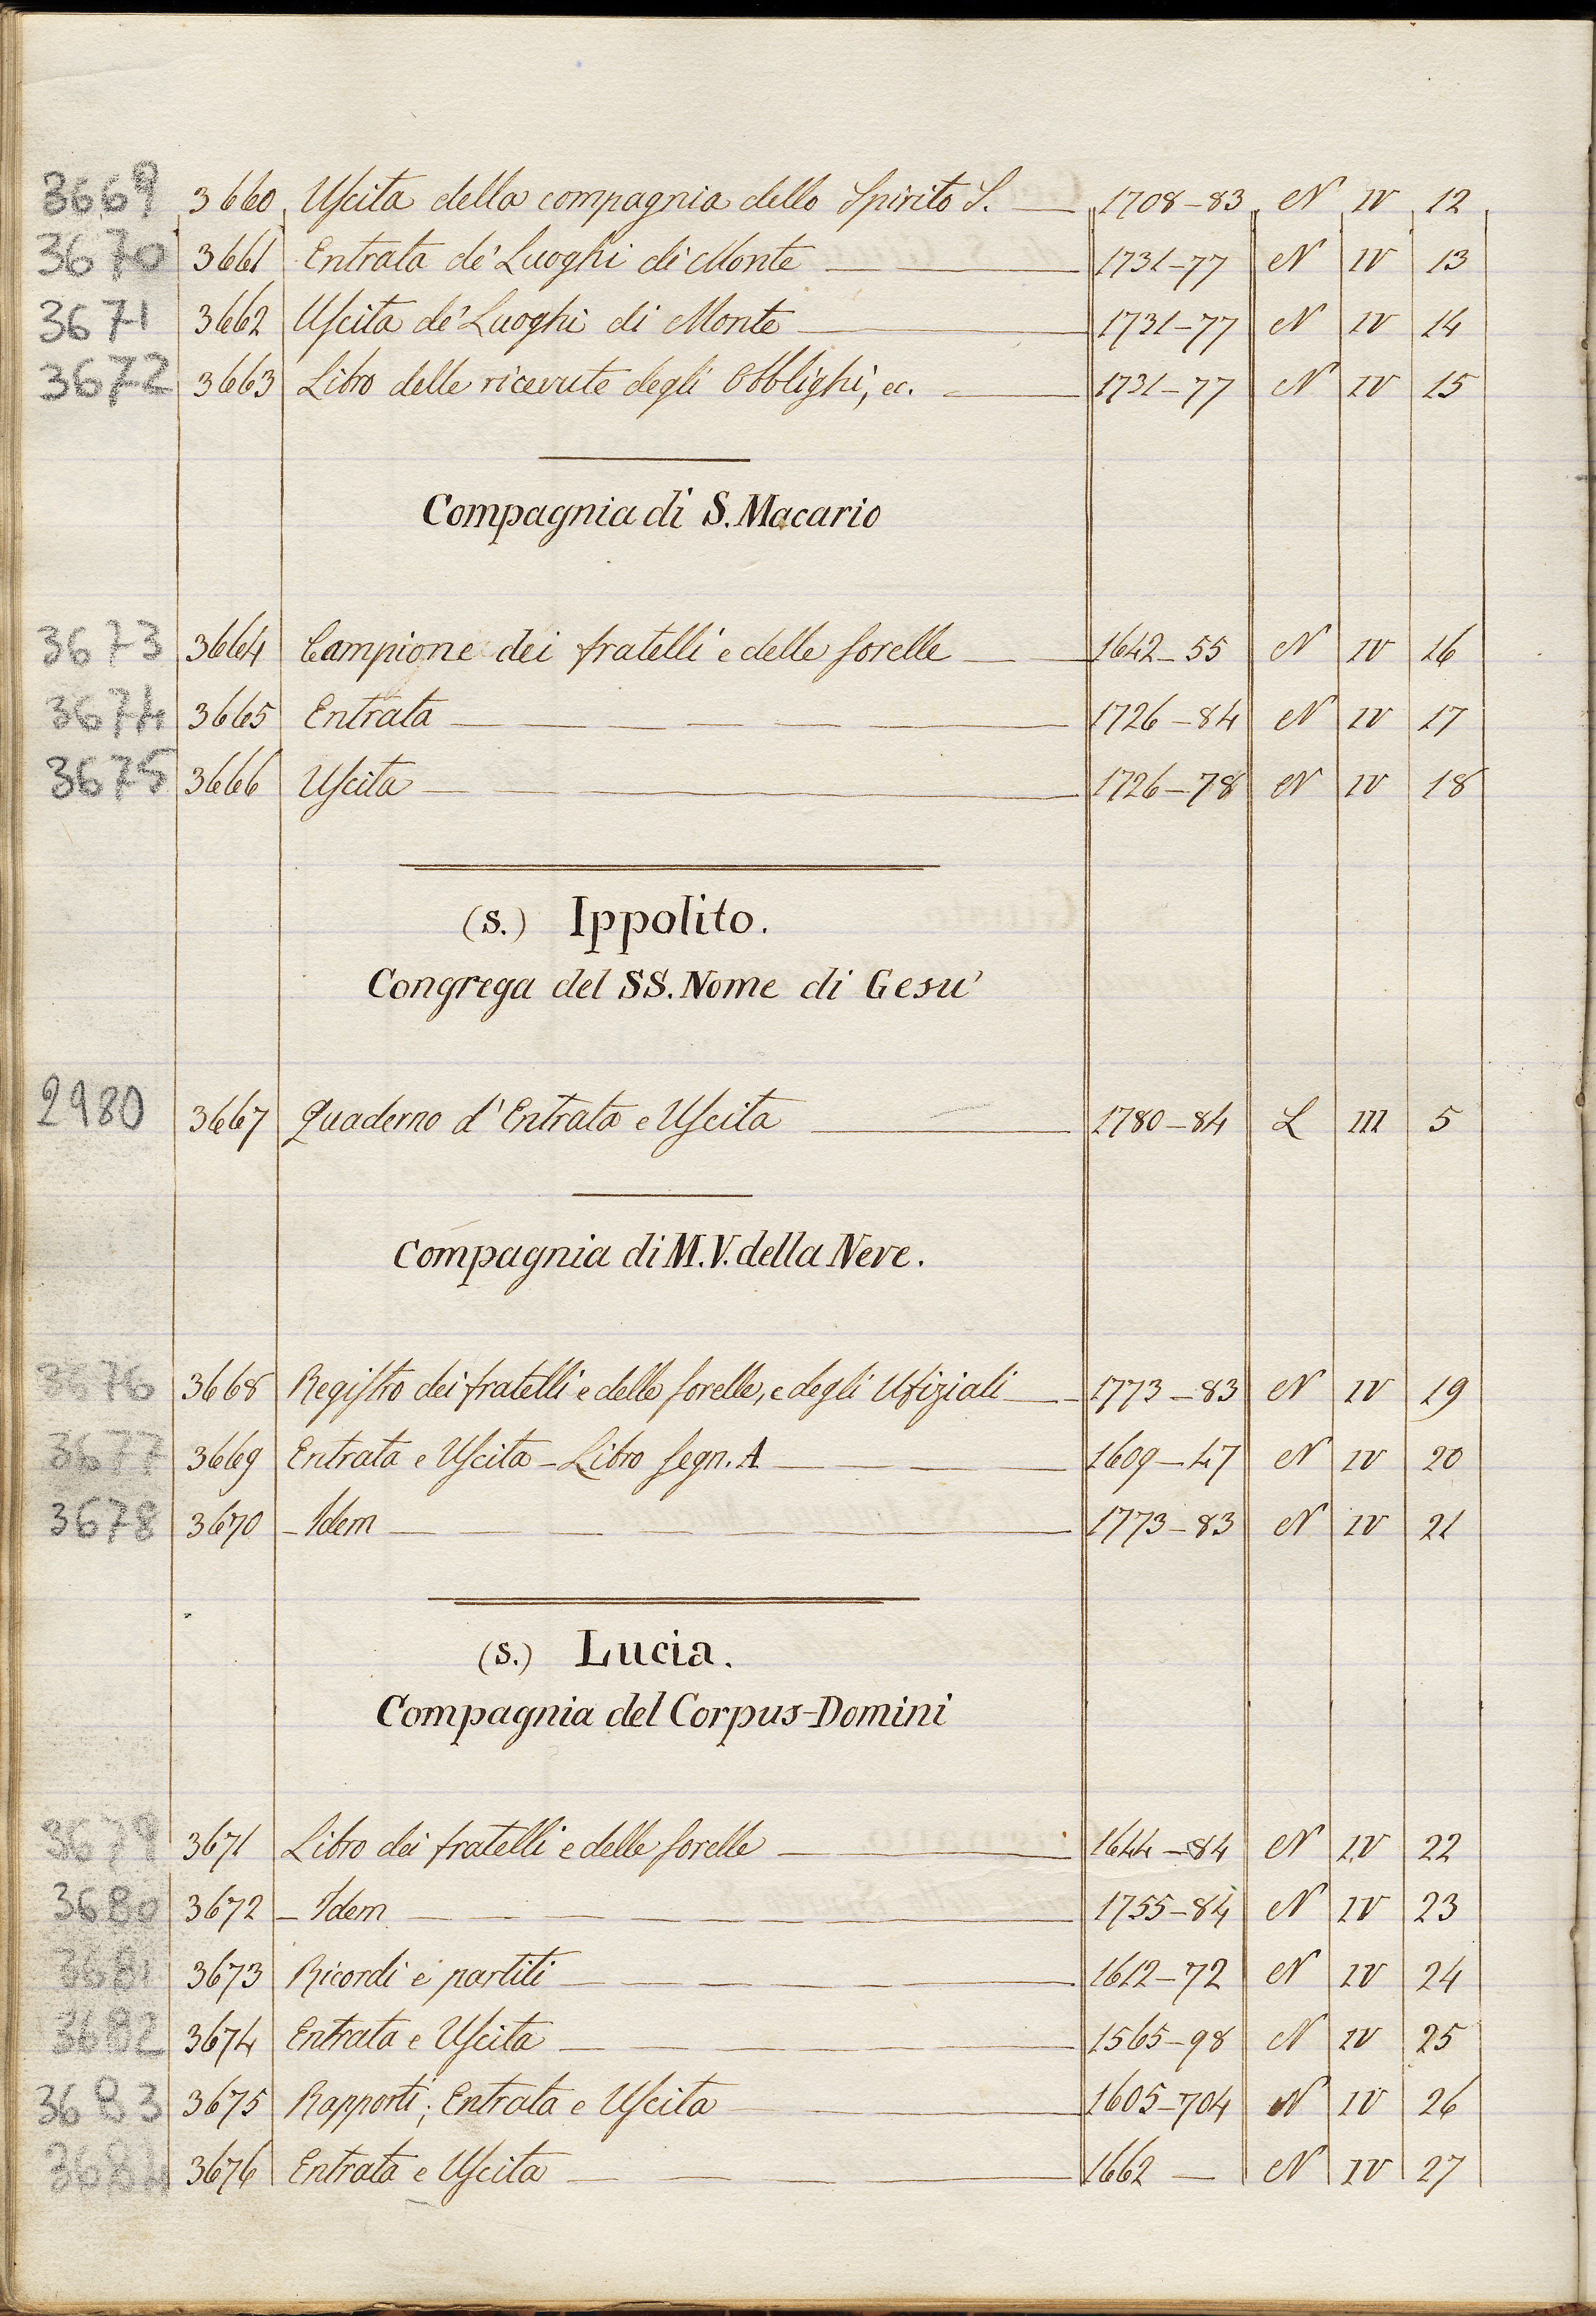 3669 3660 Uscita della compagnia dello Spirito S. 1708-83 N IV 12
3670 3661 Entrata de' Luoghi di Monte 1731-77 N IV 13
3671 3662 Uscita de' Luoghi di Monte 1731-77 N IV 14
3672 3663 Libro delle ricevute degli Obblighi, ec. 1731-77 N IV 15
Compagnia di S. Macario
3673 3664 Campione dei fratelli e delle sorelle 1642-55 N IV 16
3674 3665 Entrata 1726-84 N IV 17
3675 3666 Uscita 1726-78 N IV 18
(S.) Ippolito.
Congrega del SS. Nome di Gesu'
2980 3667 Quaderno d'Entrata e Uscita 1780-84 L III 5
Compagnia di M.V. della Neve.
3676 3668 Registro dei fratelli e delle sorelle, e degli Ufiziali 1773-83 N IV 19
3677 3669 Entrata e Uscita - Libro segn. A 1609-47 N IV 20
3678 3670 - Idem 1773-83 N IV 21
(S.) Lucia.
Compagnia del Corpus-Domini
3679 3671 Libro dei fratelli e delle sorelle 1644-84 N IV 22
3680 3672 - Idem 1755-84 N IV 23
3681 3673 Ricordi e partiti 1612-72 N IV 24
3682 3674 Entrata e Uscita 1565-98 N IV 25
3683 3675 Rapporti; Entrata e Uscita 1605-704 N IV 26
3684 3676 Entrata e Uscita 1662 - N IV 27